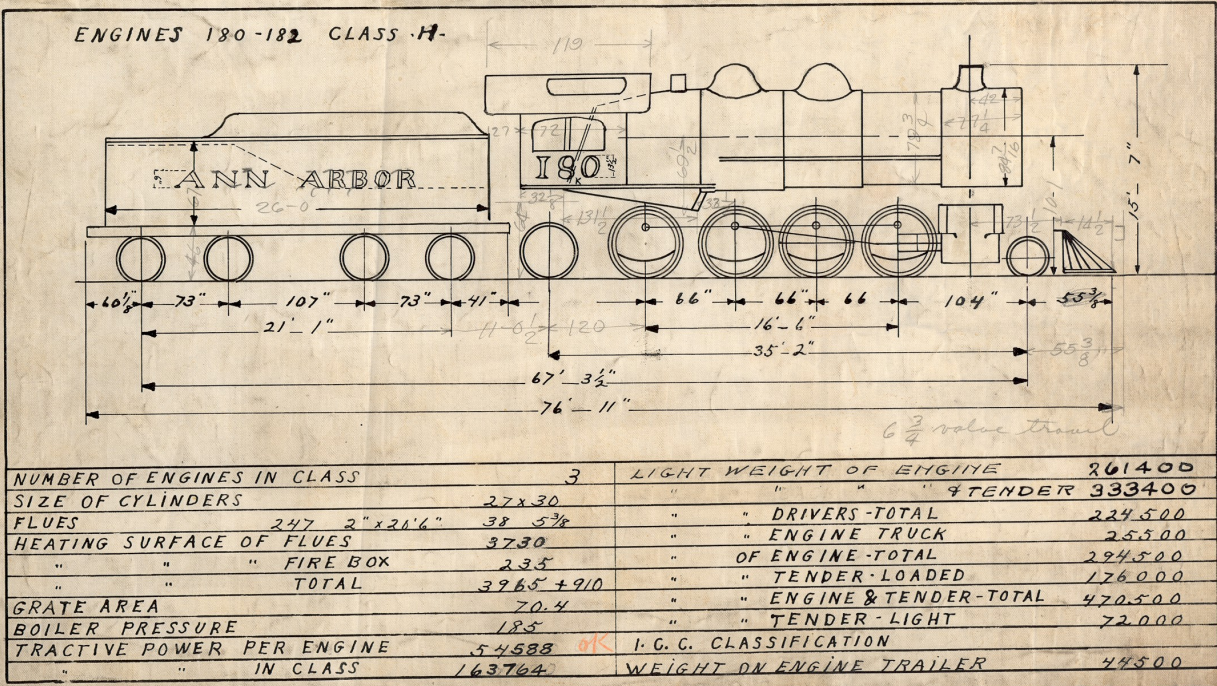 ENGINES 180-182 CLASS -H-
119
42
77 1/4
27
72
79 3/4
69 1/2
15'-7"
180
ANN ARBOR
26-0
32 7/8
131 1/2
38
73 1/2
14 1/2
10-1
60 1/8" 73" 107" 73" 41" 66" 66" 66 104" 55 3/8"
21'-1" 11-0 1/2 120 16'-6"
35'-2" 55 3/8
67'-3 1/2"
76'-11"
6 3/4 valve travel
NUMBER OF ENGINES IN CLASS 3
SIZE OF CYLINDERS 27x30
FLUES 247 2"x20'6" 38 5 3/8
HEATING SURFACE OF FLUES 3730
" " " FIRE BOX 235
" " TOTAL 3965 +910
GRATE AREA 70.4
BOILER PRESSURE 185
TRACTIVE POWER PER ENGINE 54588 OK
" " IN CLASS 163764
LIGHT WEIGHT OF ENGINE 261400
" " " " & TENDER 333400
" " DRIVERS-TOTAL 224500
" " ENGINE TRUCK 25500
" OF ENGINE-TOTAL 294500
" " TENDER-LOADED 176000
" " ENGINE & TENDER-TOTAL 470500
" " TENDER-LIGHT 72000
I.C.C. CLASSIFICATION
WEIGHT ON ENGINE TRAILER 44500